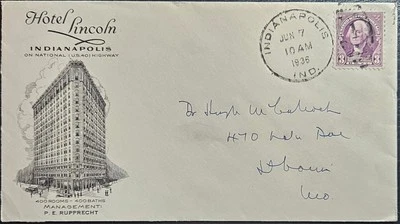 Hotel
Lincoln
INDIANAPOLIS
ON NATIONAL (U.S. 40) HIGHWAY
400 ROOMS - 400 BATHS
MANAGEMENT:
P. E. RUPPRECHT
INDIANAPOLIS
JUN 7
10 AM
1936
IND.
3 3
Dr Hugh McCulloch
4710
St Louis
Mo.